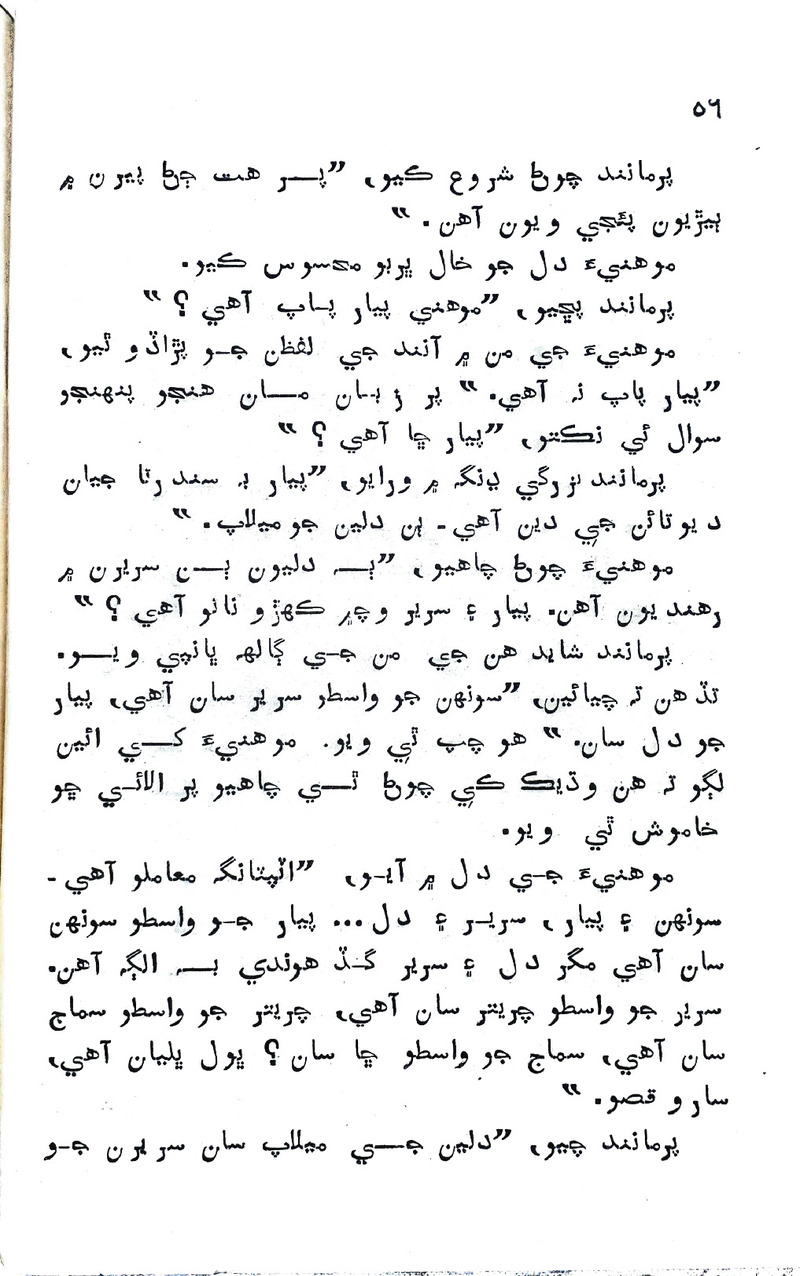 ٥٦
پرمانند چوڻ شروع ڪيو، ”پر هت ڄڻ پيرن ۾
ٻيڙيون پئجي ويون آهن.“
موهنيءَ دل جو خال ڀربو محسوس ڪيو.
پرمانند پڇيو، ”موهني پيار پاپ آهي؟“
موهنيءَ جي من ۾ آنند جي لفظن جو پڙاڏو ٿيو،
”پيار پاپ نہ آهي.“ پر زبان مان هنجو پنهنجو
سوال ئي نڪتو، ”پيار ڇا آهي؟“
پرمانند بزرگي ڍنگہ ۾ ورايو، ”پيار بہ سندرتا جيان
ديوتائن جي دين آهي ـ ٻن دلين جو ميلاپ.“
موهنيءَ چوڻ چاهيو، ”ٻہ دليون ٻن سريرن ۾
رهنديون آهن. پيار ۽ سرير وچ۾ ڪهڙو ناتو آهي؟“
پرمانند شايد هن جي من جي ڳالهہ ڀانپي ويو.
تڏهن تہ چيائين، ”سونهن جو واسطو سرير سان آهي، پيار
جو دل سان.“ هو چپ ٿي ويو. موهنيءَ کي ائين
لڳو تہ هن وڌيڪ ڪي چوڻ ٿي چاهيو پر الائي ڇو
خاموش ٿي ويو.
موهنيءَ جي دل ۾ آيو، ”اٽپٽانگہ معاملو آهي ـ
سونهن ۽ پيار، سرير ۽ دل... پيار جو واسطو سونهن
سان آهي مگر دل ۽ سرير گڏ هوندي بہ الڳہ آهن.
سرير جو واسطو چرپتر سان آهي، چرپتر جو واسطو سماج
سان آهي، سماج جو واسطو ڇا سان؟ ڀول ڀليان آهي،
سارو قصو.“
پرمانند چيو، ”دلين جي ميلاپ سان سريرن جو